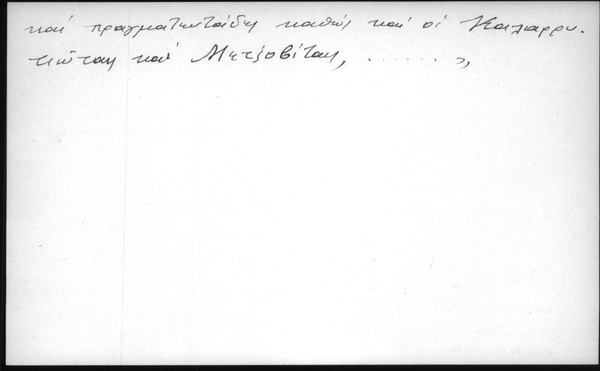 καί πραγματευτάδες καθώς καί οἱ Καλαρρυ.
τιῶται καί Μετζοβίται, . . . . . . »,